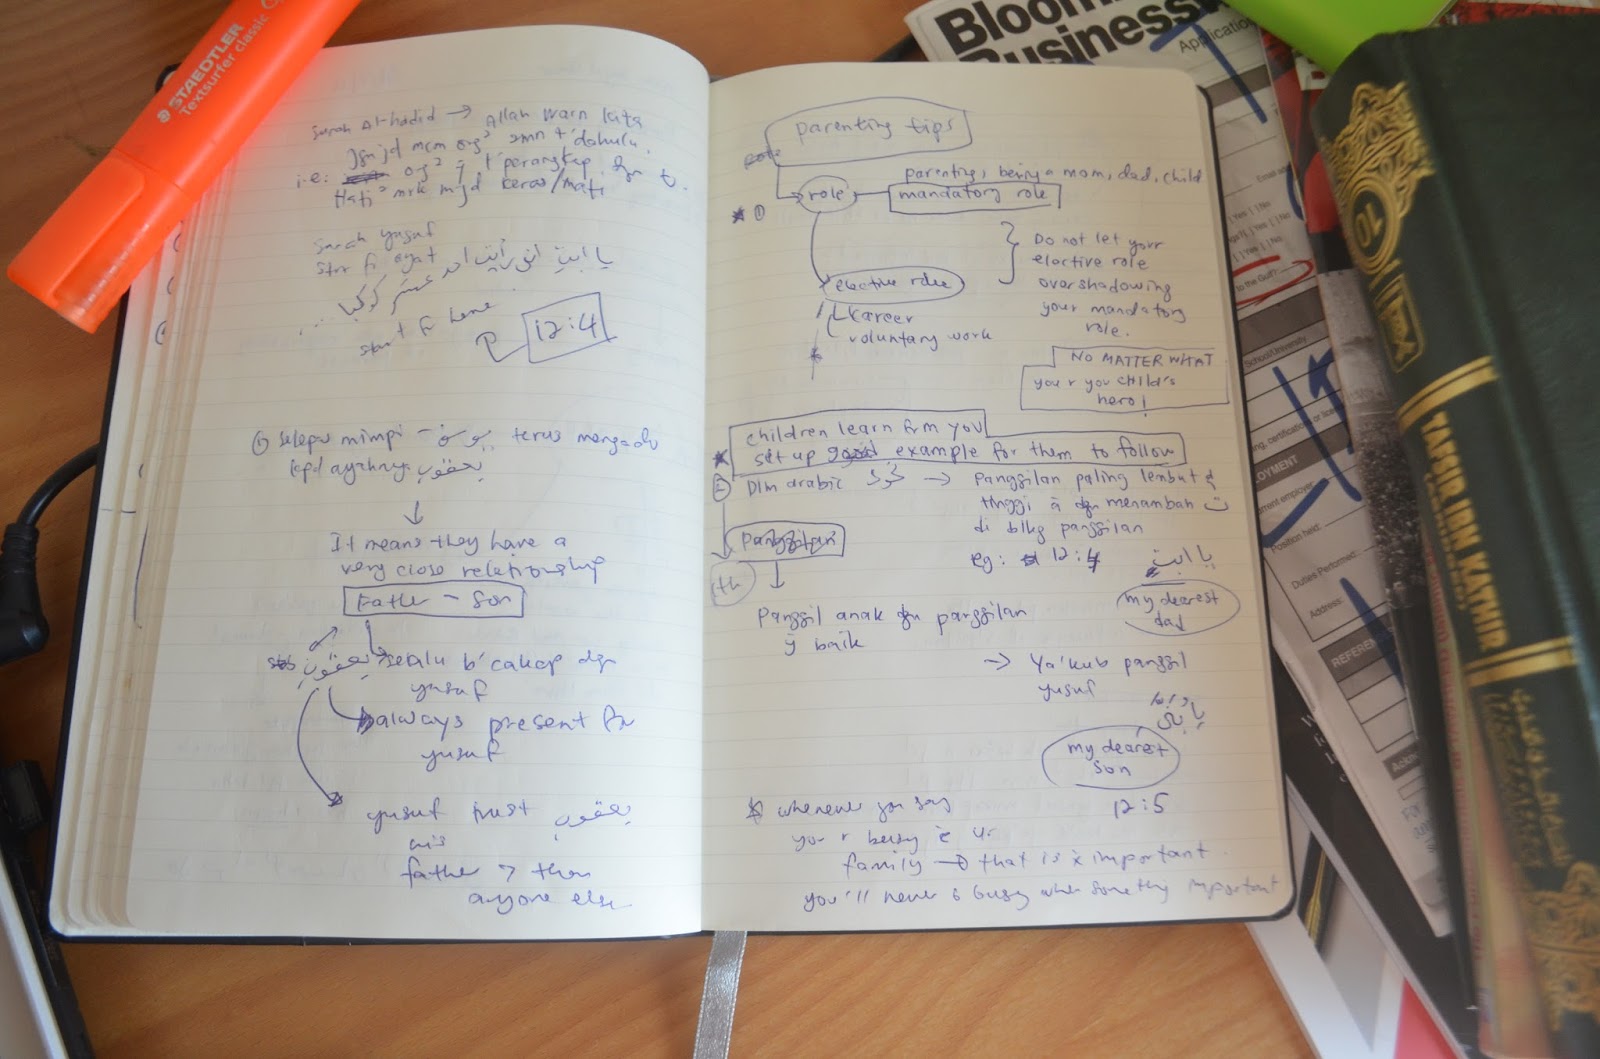 STAEDTLER
Textsurfer classic
Surah Al-hadid → Allah warn kita
Jgn jd mcm org² zmn t'dahulu.
i.e: org² ÿ t'perangkap dgn
Hati² mrk mjd keras/mati
surah yusuf
star fi ayat
يا ابتِ انى رأيت احد عشر كوكبا ...
start fr here
12:4
① selepas mimpi - يوسف terus mengadu
kpd ayahnya يعقوب
↓
It means they have a
very close relationship
Father - Son
يعقوب selalu b'cakap dgn
yusuf
always present for
yusuf
yusuf trust يعقوب
his
father > than
anyone else
parenting tips
① role
parenting, being a mom, dad, child
mandatory role
elective role
career
voluntary work
Do not let your
elective role
overshadowing
your mandatory
role.
NO MATTER WHAT
you r you CHILD'S
hero!
children learn frm you
set up good example for them to follow
② Dlm arabic → Panggilan paling lembut &
tinggi à dgn menambah ت
di blkg panggilan
eg: 12:4 يا ابتِ
my dearest
dad
Panggilan
(th)
↓
Panggil anak dgn panggilan
ÿ baik
→ Ya'kub panggil
yusuf
يا بنى
my dearest
son
12:5
whenever you say
you r busy è ur
family → that is x important.
you'll never b busy when something important
Bloom
Businessw
Application
Yes [ ] No
to the Gulf?
School/University
Position held:
Duties Performed:
Address:
REFERE
10
TAFSIR IBN KATHIR